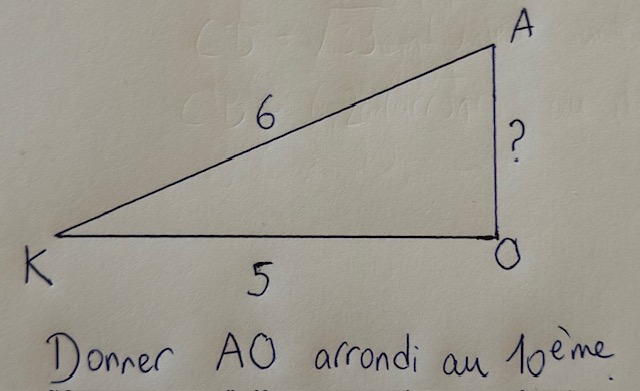 A
6
?
K
O
5
Donner AO arrondi au 10ème.